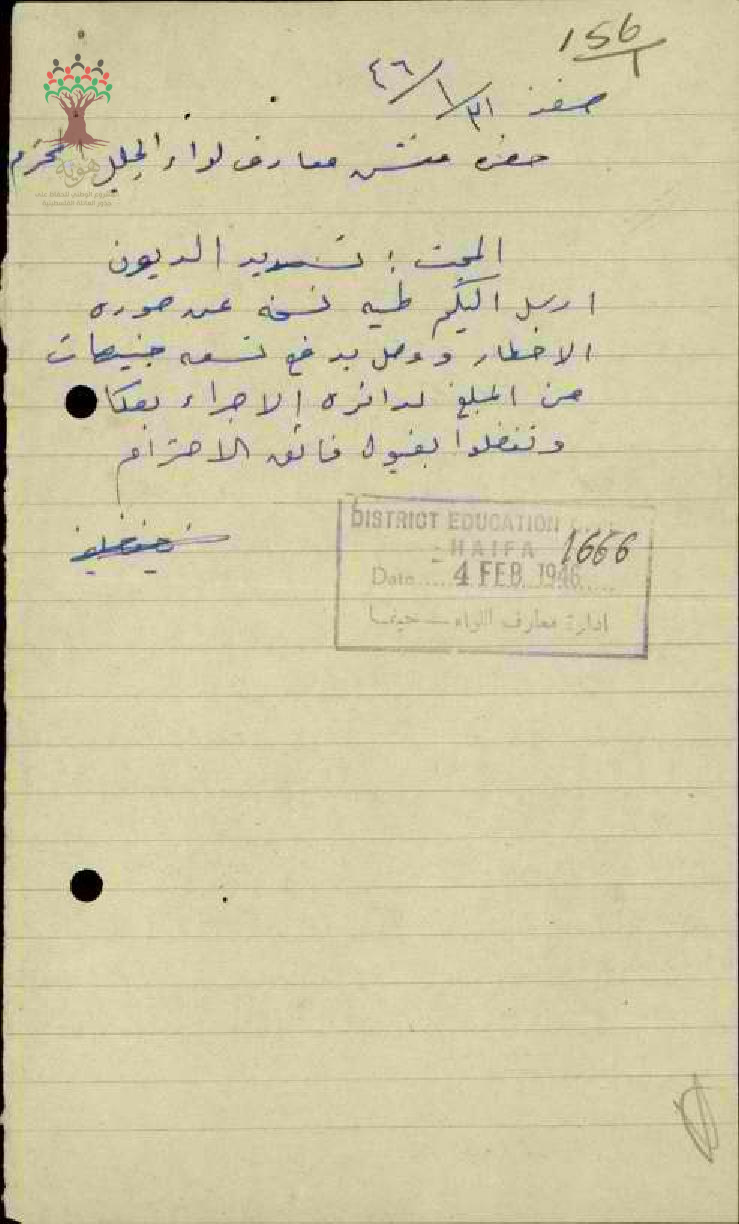 156/1
صفد ٣١/١/٤٦
حضرة مفتش معارف لواء الجليل المحترم
هوية
المشروع الوطني للحفاظ على
جذور العائلة الفلسطينية
المبحث : تسديد الديون
ارسل اليكم طيه نسخه عن صوره
الاخطار ووصل بدفع تسعه جنيهات
من المبلغ لدائرة الاجراء بعكا
وتفضلوا بقبول فائق الاحترام
DISTRICT EDUCATION
HAIFA 1666
Date 4 FEB 1946
ادارة معارف اللواء - حيفا